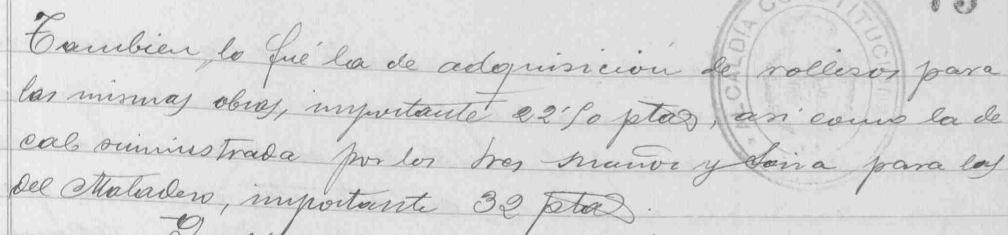 Tambien, lo fué la de adquisición de rollisos para
las mismas obras, importante 22'50 ptas, asi como la de
cal suministrada por los Sres y para las
del Matadero, importante 32 ptas.
ALCALDÍA CONSTITUCI